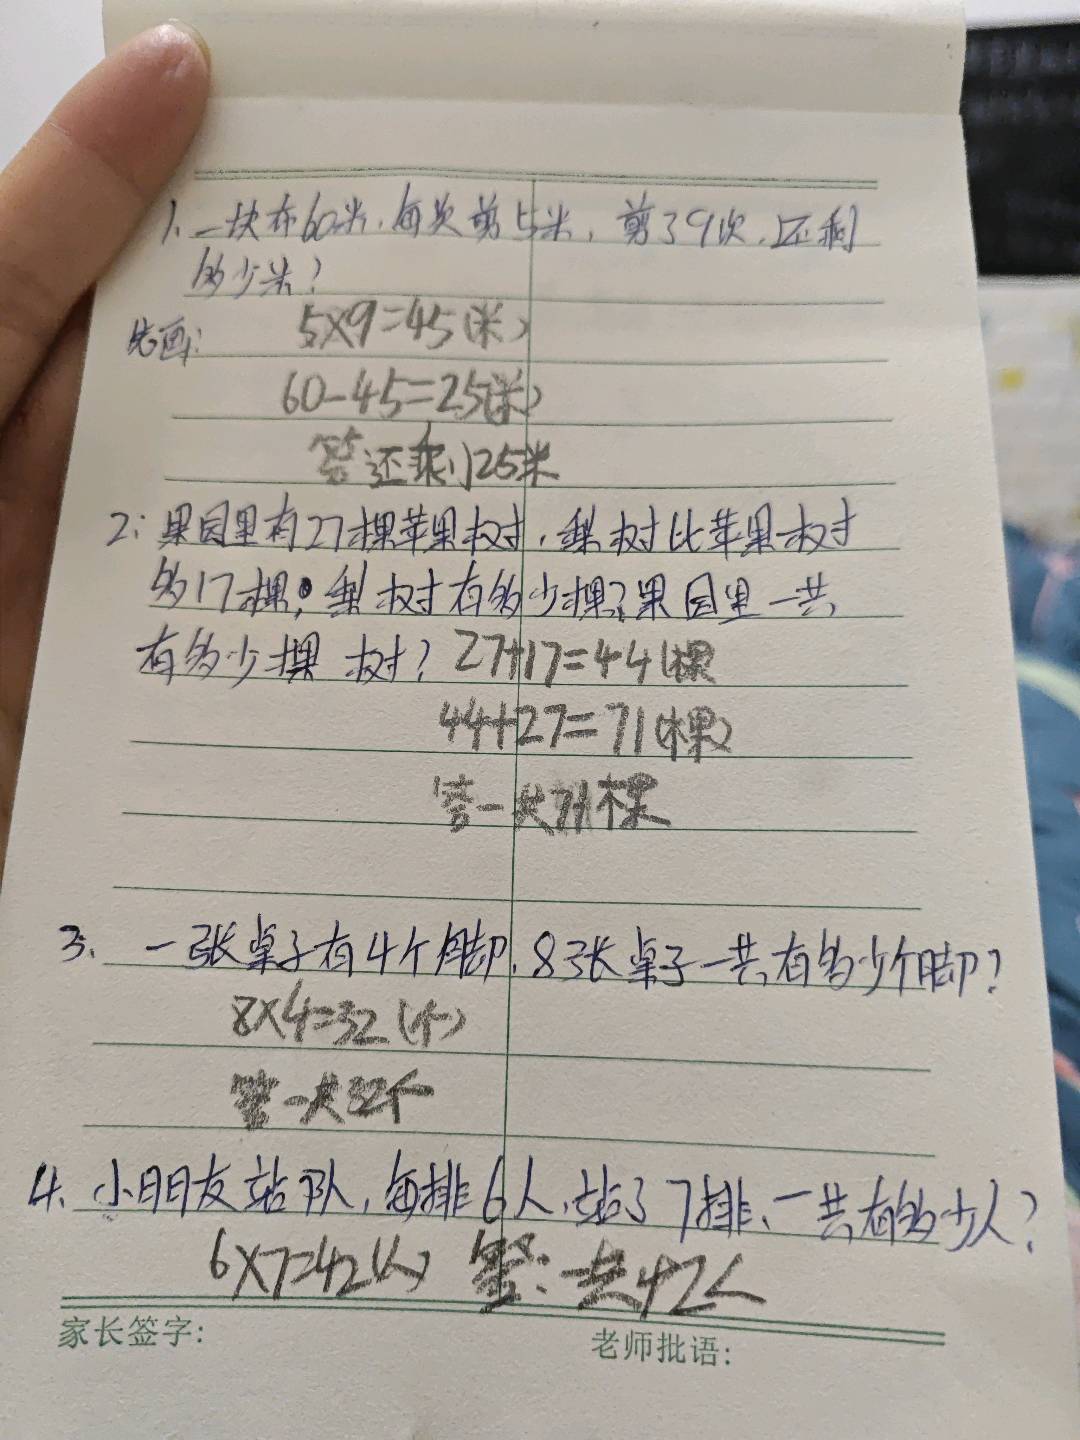 1、一块布60米，每次剪5米，剪了9次，还剩
多少米？
先画：
5×9=45(米)
60-45=25(米)
答还剩25米
2：果园里有27棵苹果树，梨树比苹果树
多17棵，梨树有多少棵？果园里一共
有多少棵树？ 27+17=44(棵
44+27=71(棵)
答一共71棵
3、一张桌子有4个脚，8张桌子一共有多少个脚？
8×4=32(个)
答一共32个
4、小朋友站队，每排6人，站了7排、一共有多少人？
6×7=42(人) 答：一共42人
家长签字: 老师批语: